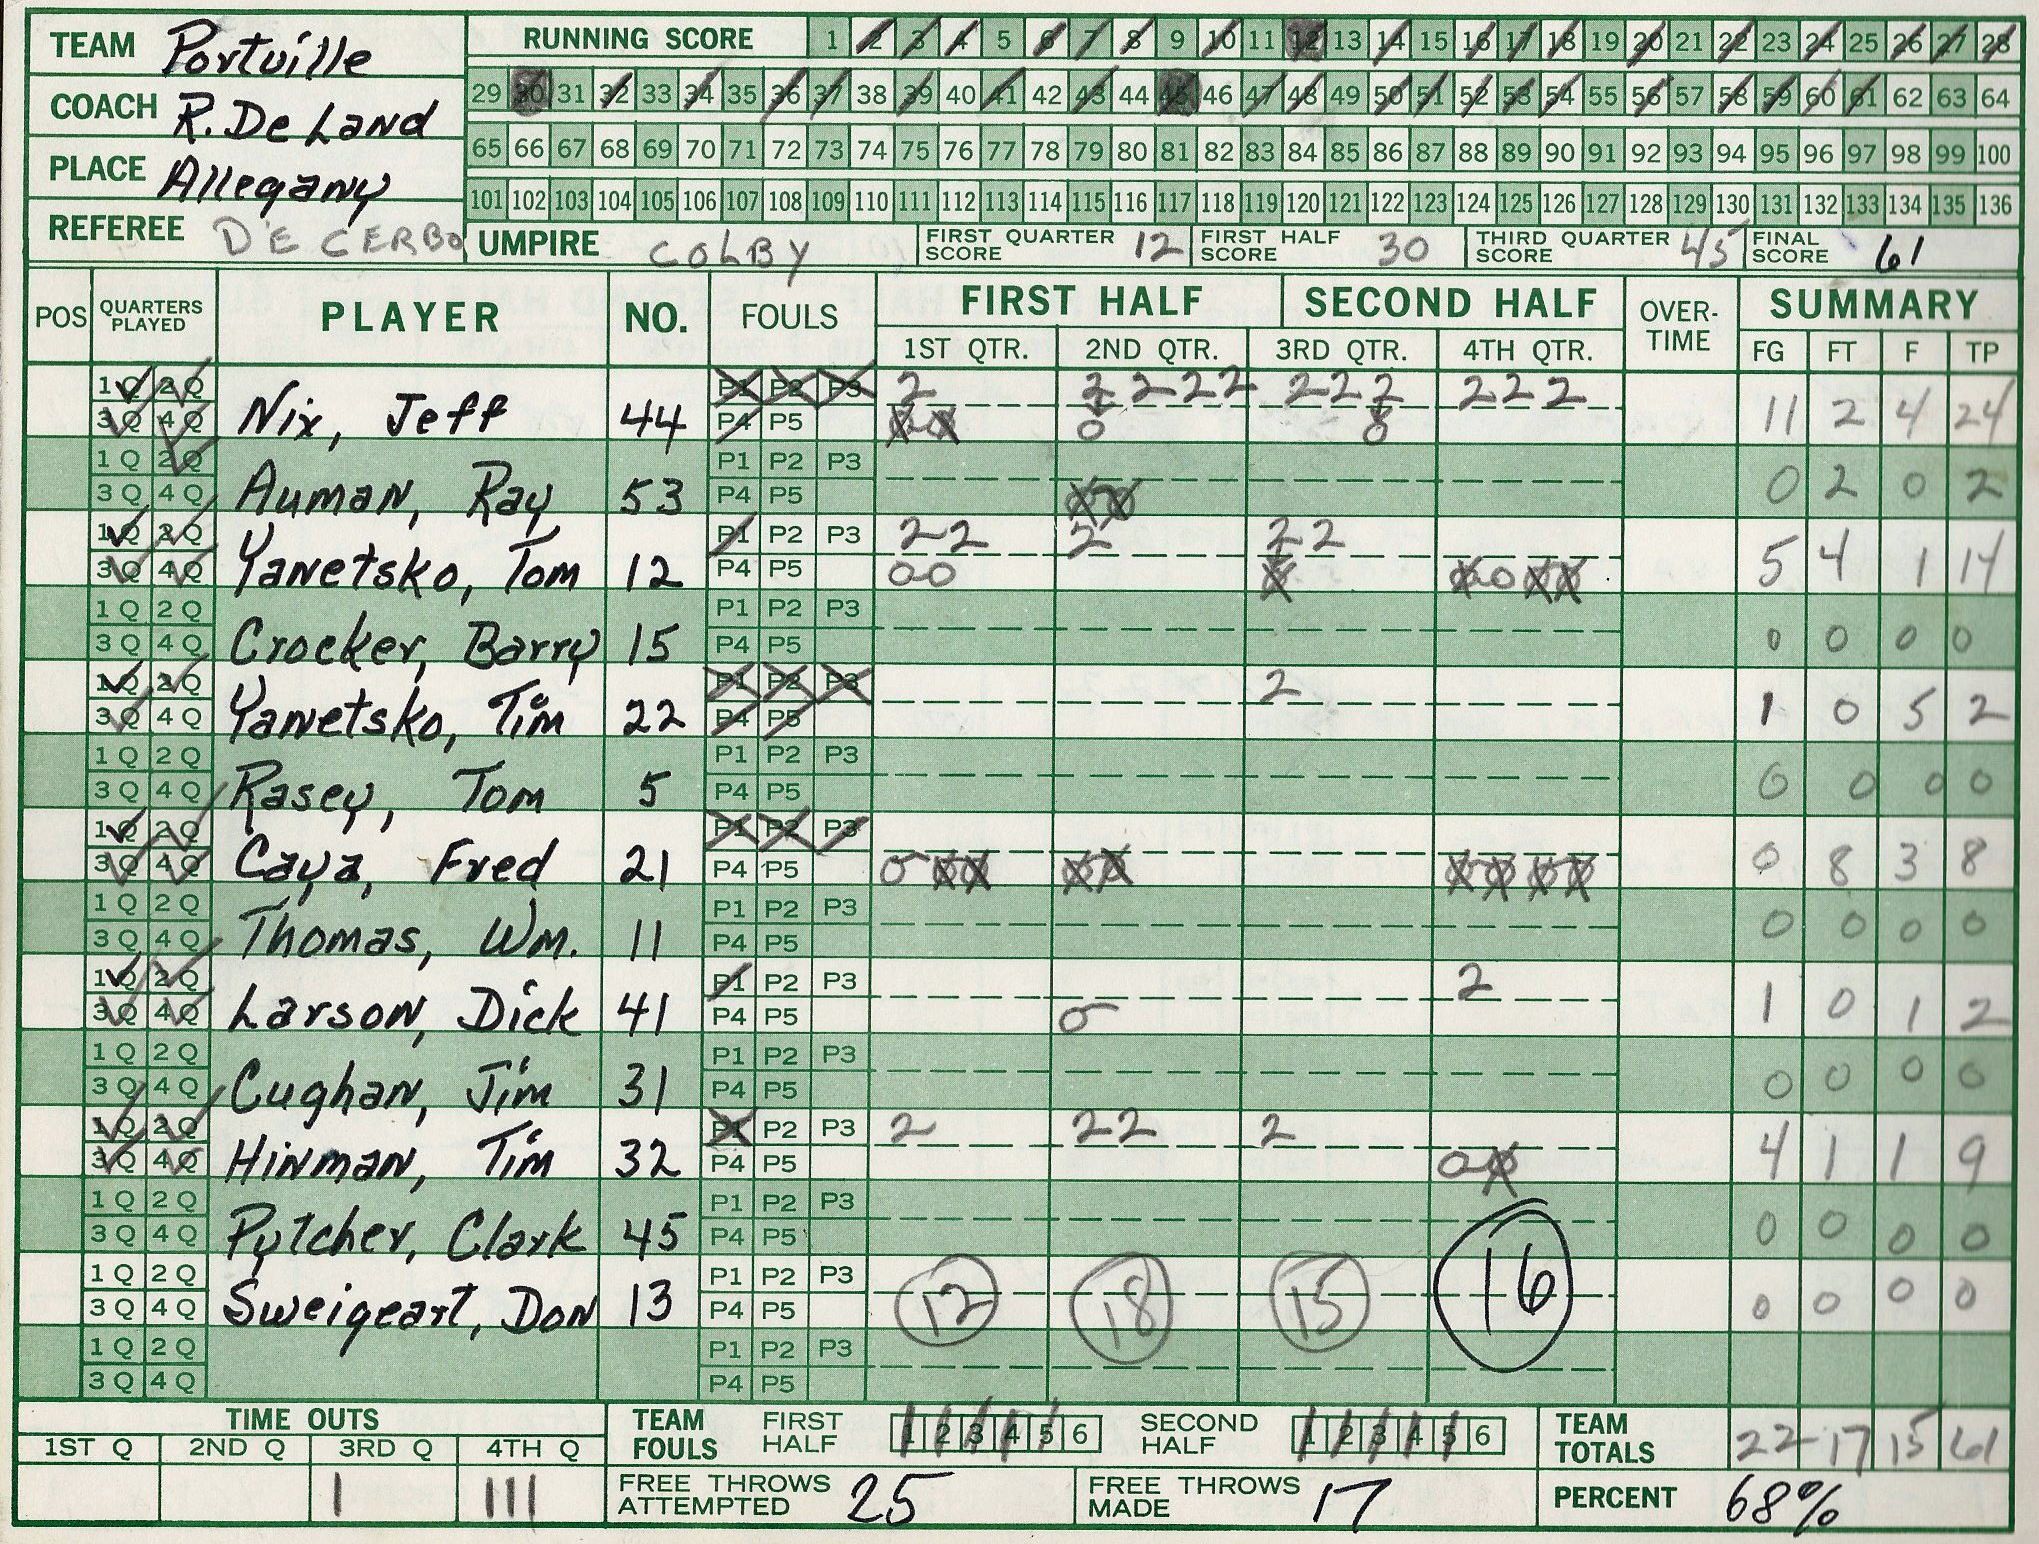 TEAM Portville RUNNING SCORE 1 2 3 4 5 6 7 8 9 10 11 12 13 14 15 16 17 18 19 20 21 22 23 24 25 26 27 28
COACH R. DeLand 29 30 31 32 33 34 35 36 37 38 39 40 41 42 43 44 45 46 47 48 49 50 51 52 53 54 55 56 57 58 59 60 61 62 63 64
PLACE Allegany 65 66 67 68 69 70 71 72 73 74 75 76 77 78 79 80 81 82 83 84 85 86 87 88 89 90 91 92 93 94 95 96 97 98 99 100
101 102 103 104 105 106 107 108 109 110 111 112 113 114 115 116 117 118 119 120 121 122 123 124 125 126 127 128 129 130 131 132 133 134 135 136
REFEREE DE CERBO UMPIRE COLBY FIRST QUARTER SCORE 12 FIRST HALF SCORE 30 THIRD QUARTER SCORE 45 FINAL SCORE 61
POS QUARTERS PLAYED PLAYER NO. FOULS FIRST HALF SECOND HALF OVER-TIME SUMMARY
1ST QTR. 2ND QTR. 3RD QTR. 4TH QTR. FG FT F TP
1Q 2Q P1 P2 P3 2 2 2 2 2 2 2 2 2 2 2
3Q 4Q Nix, Jeff 44 P4 P5 0 0 0 0 11 2 4 24
1Q 2Q P1 P2 P3
3Q 4Q Auman, Ray 53 P4 P5 0 0 0 2 0 2
1Q 2Q P1 P2 P3 2 2 2 2 2
3Q 4Q Yanetsko, Tom 12 P4 P5 0 0 0 0 0 0 0 5 4 1 14
1Q 2Q P1 P2 P3
3Q 4Q Crocker, Barry 15 P4 P5 0 0 0 0
1Q 2Q P1 P2 P3 2
3Q 4Q Yanetsko, Tim 22 P4 P5 1 0 5 2
1Q 2Q P1 P2 P3
3Q 4Q Rasey, Tom 5 P4 P5 0 0 0 0
1Q 2Q P1 P2 P3
3Q 4Q Caya, Fred 21 P4 P5 0 0 0 0 0 0 0 0 0 0 8 3 8
1Q 2Q P1 P2 P3
3Q 4Q Thomas, Wm. 11 P4 P5 0 0 0 0
1Q 2Q P1 P2 P3 2
3Q 4Q Larson, Dick 41 P4 P5 0 1 0 1 2
1Q 2Q P1 P2 P3
3Q 4Q Cughan, Jim 31 P4 P5 0 0 0 0
1Q 2Q P1 P2 P3 2 2 2 2
3Q 4Q Hinman, Tim 32 P4 P5 0 0 4 1 1 9
1Q 2Q P1 P2 P3
3Q 4Q Putcher, Clark 45 P4 P5 0 0 0 0
1Q 2Q P1 P2 P3
3Q 4Q Sweigeart, Don 13 P4 P5 12 18 15 16 0 0 0 0
1Q 2Q P1 P2 P3
3Q 4Q P4 P5
TIME OUTS TEAM FOULS FIRST HALF 1 2 3 4 5 6 SECOND HALF 1 2 3 4 5 6 TEAM TOTALS 22 17 15 61
1ST Q 2ND Q 3RD Q 4TH Q
I III FREE THROWS ATTEMPTED 25 FREE THROWS MADE 17 PERCENT 68%